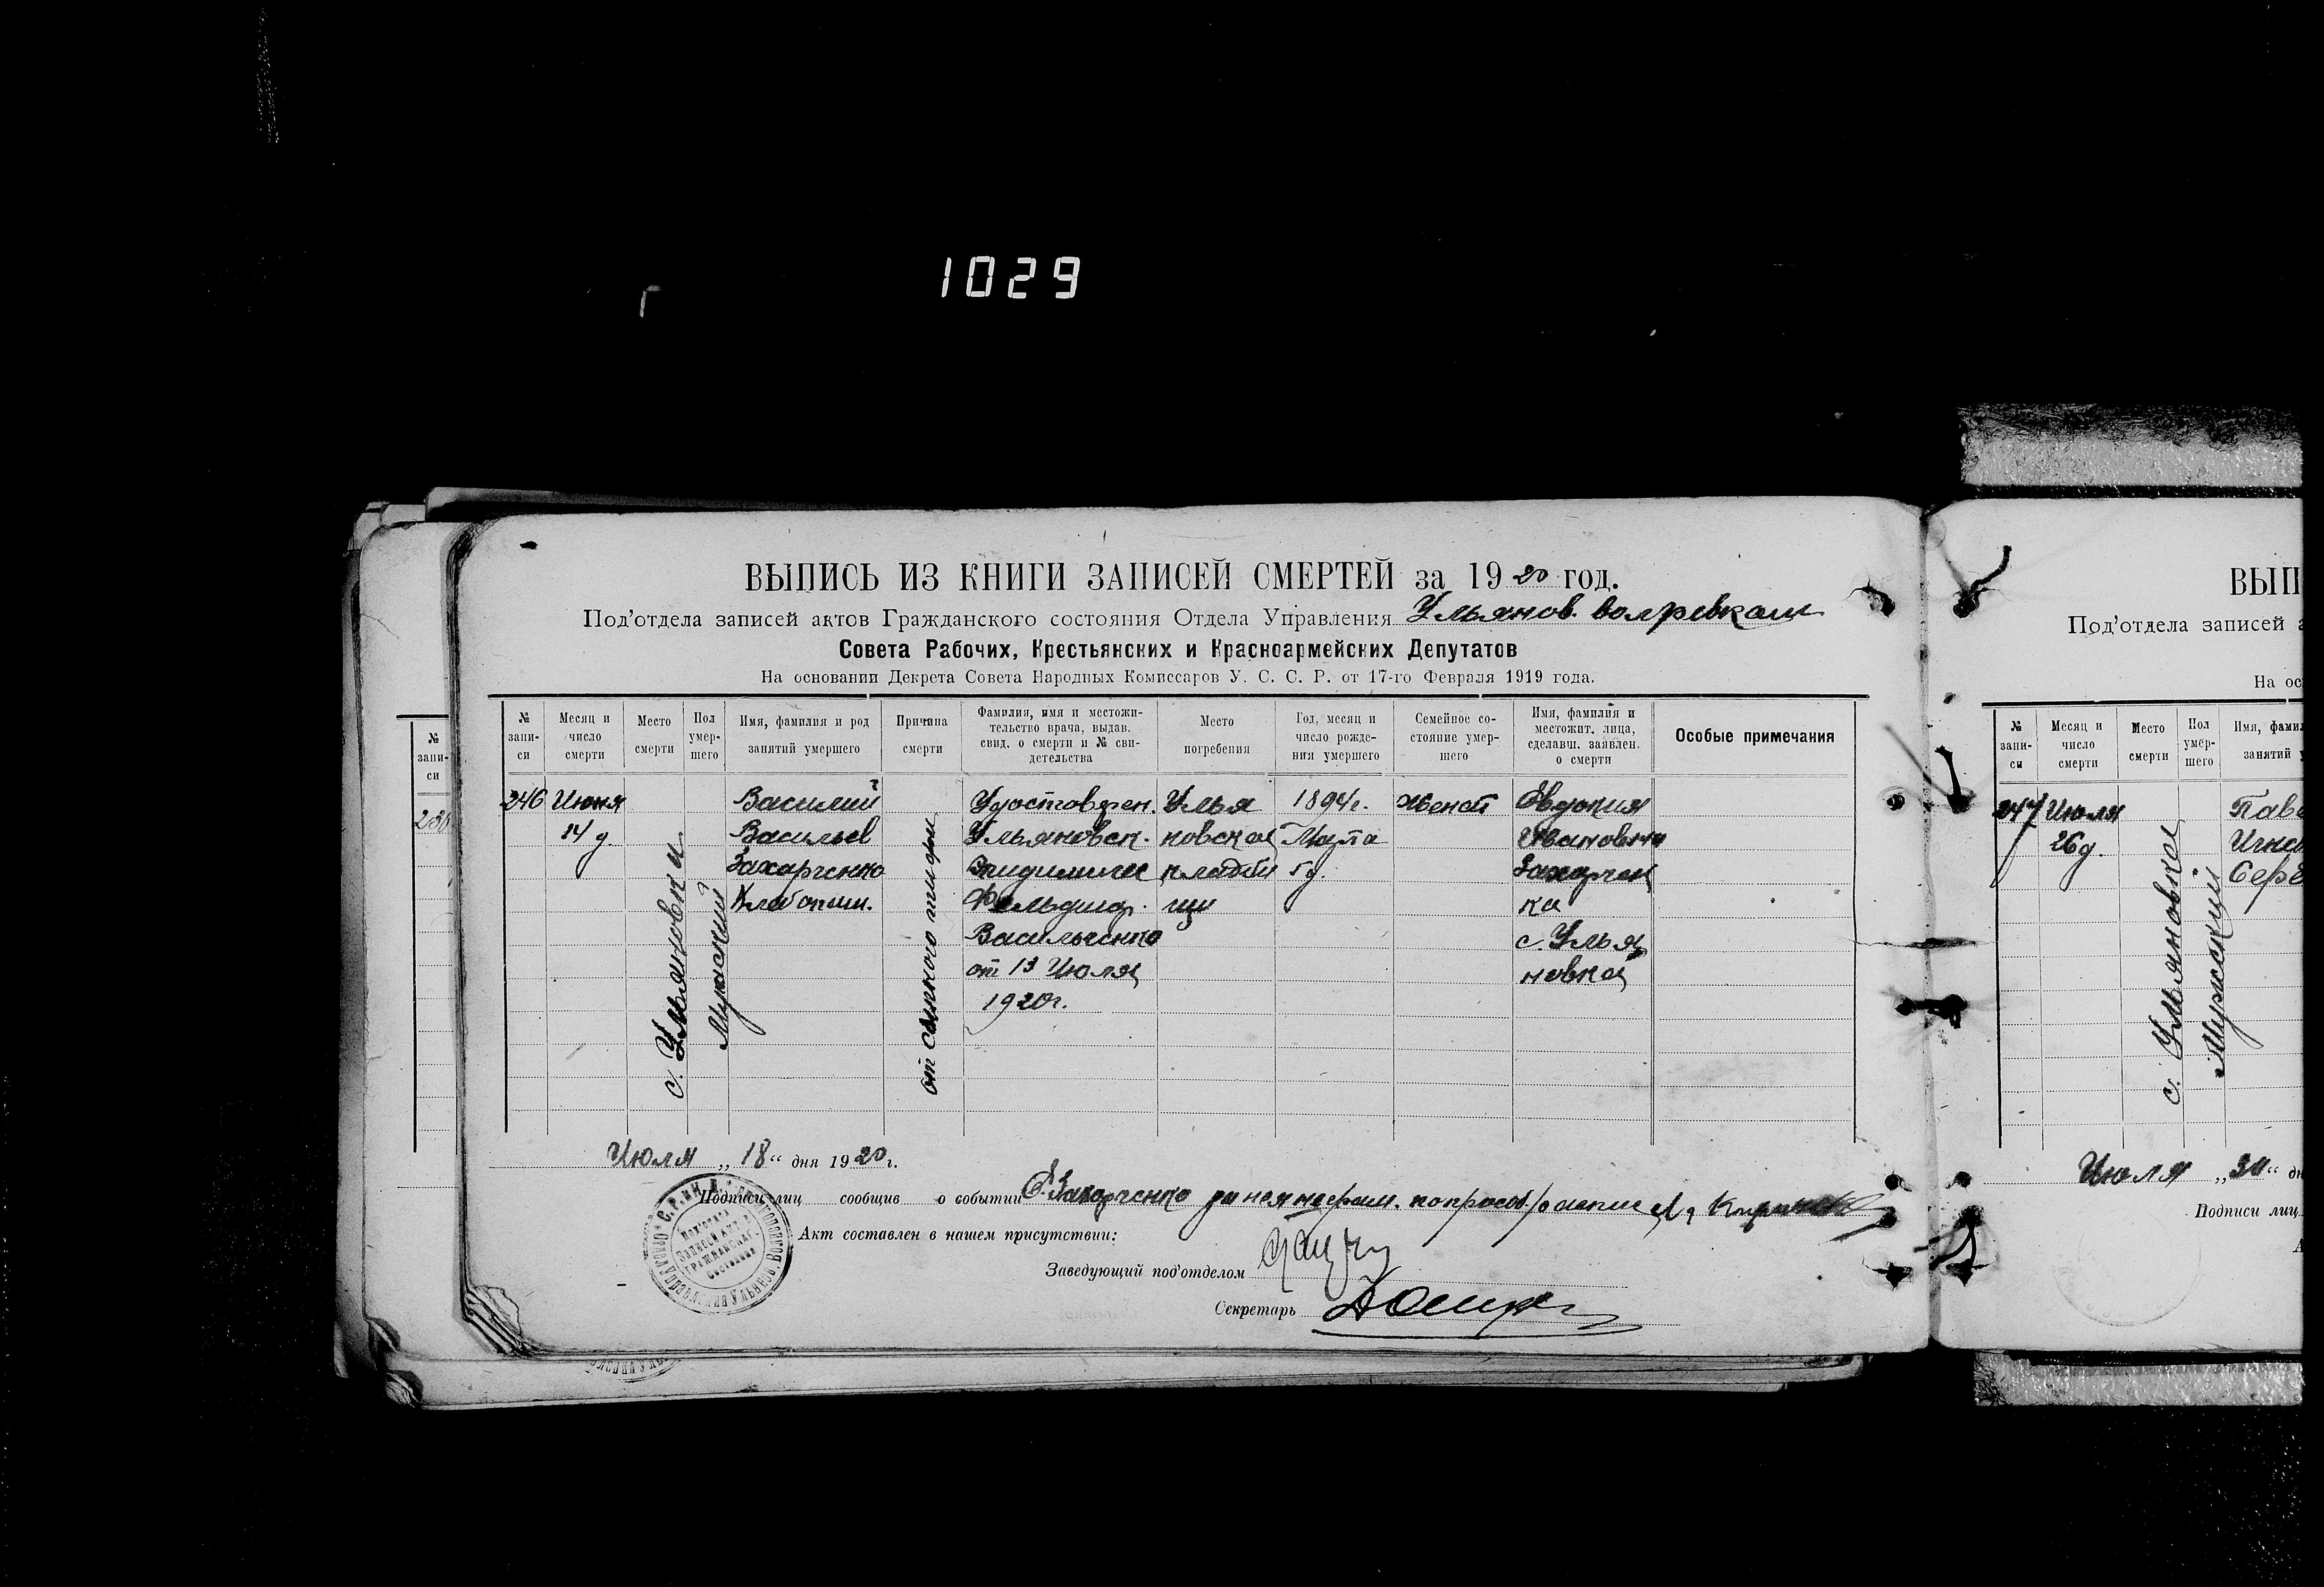 1029
ВЫПИСЬ ИЗ КНИГИ ЗАПИСЕЙ СМЕРТЕЙ за 1920 год.
Под'отдела записей актов Гражданского состояния Отдела Управления Ульянов. волревком
Совета Рабочих, Крестьянских и Красноармейских Депутатов
На основании Декрета Совета Народных Комиссаров У. С. С. Р. от 17-го Февраля 1919 года.
№ запи-си
Месяц и число смерти
Место смерти
Пол умер-шего
Имя, фамилия и род занятий умершего
Причина смерти
Фамилия, имя и местожи-тельство врача, выдав. свид. о смерти и № сви-детельства
Место погребения
Год, месяц и число рожде-ния умершего
Семейное со-стояние умер-шего
Имя, фамилия и местожит. лица, сделавш. заявлен. о смерти
Особые примечания
246
Июня
14 д.
с. Ульяновки
Мужский
Василий
Васильев
Захарченко
Хлебопаш.
от сыпного тифа
Удостоверен.
Ульяновск.
Эпидимичес
Фельдшер.
Васильченко
от 13 Июля
1920г.
Улья
новское
кладби
ще
1894г.
Марта
5 д.
женат
Евдокия
Ивановна
Захарчен
ко
с. Улья
новка
Июля „18“ дня 1920 г.
Подписи лиц сообщив о событии Е. Захарченко за нея неграм. по просьб.
Акт составлен в нашем присутствии:
Заведующий под'отделом
Секретарь
№ запи-си
ВЫП
Под'отдела записей а
На ос
№ запи-си
Месяц и число смерти
Место смерти
Пол умер-шего
Имя, фамил
занятий у
247
Июля
26 д.
с. Ульяновка
Мужский
Паве
Игна
Июля „30“ дн
Подписи лиц